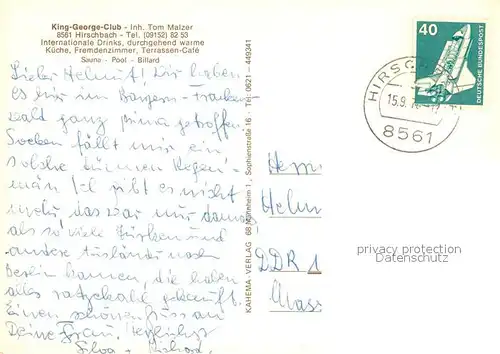 King-George-Club - Inh. Tom Malzer
8561 Hirschbach - Tel. (09152) 82 53
Internationale Drinks, durchgehend warme
Küche, Fremdenzimmer, Terrassen-Café
Sauna - Pool - Billard
Lieber Helmut! Wir haben
es hier im Bayern-Franken-
wald ganz prima getroffen
Soeben fällt mir ein
solche dünnen Regen-
män gibt es nicht
mehr, das war nur damals
als so viele Türken und
andere Ausländer nach
Berlin kamen, die haben
alles ratzekahl gekauft.
Einen schönen Gruss an
Deine Frau! Herzlichst
KAHEMA-VERLAG 68 Mannheim 1, Sophienstraße 16 - Tel. 0621-449341
40
DEUTSCHE BUNDESPOST
15.9.
8561
Herrn
DDR 1
privacy protection
Datenschutz